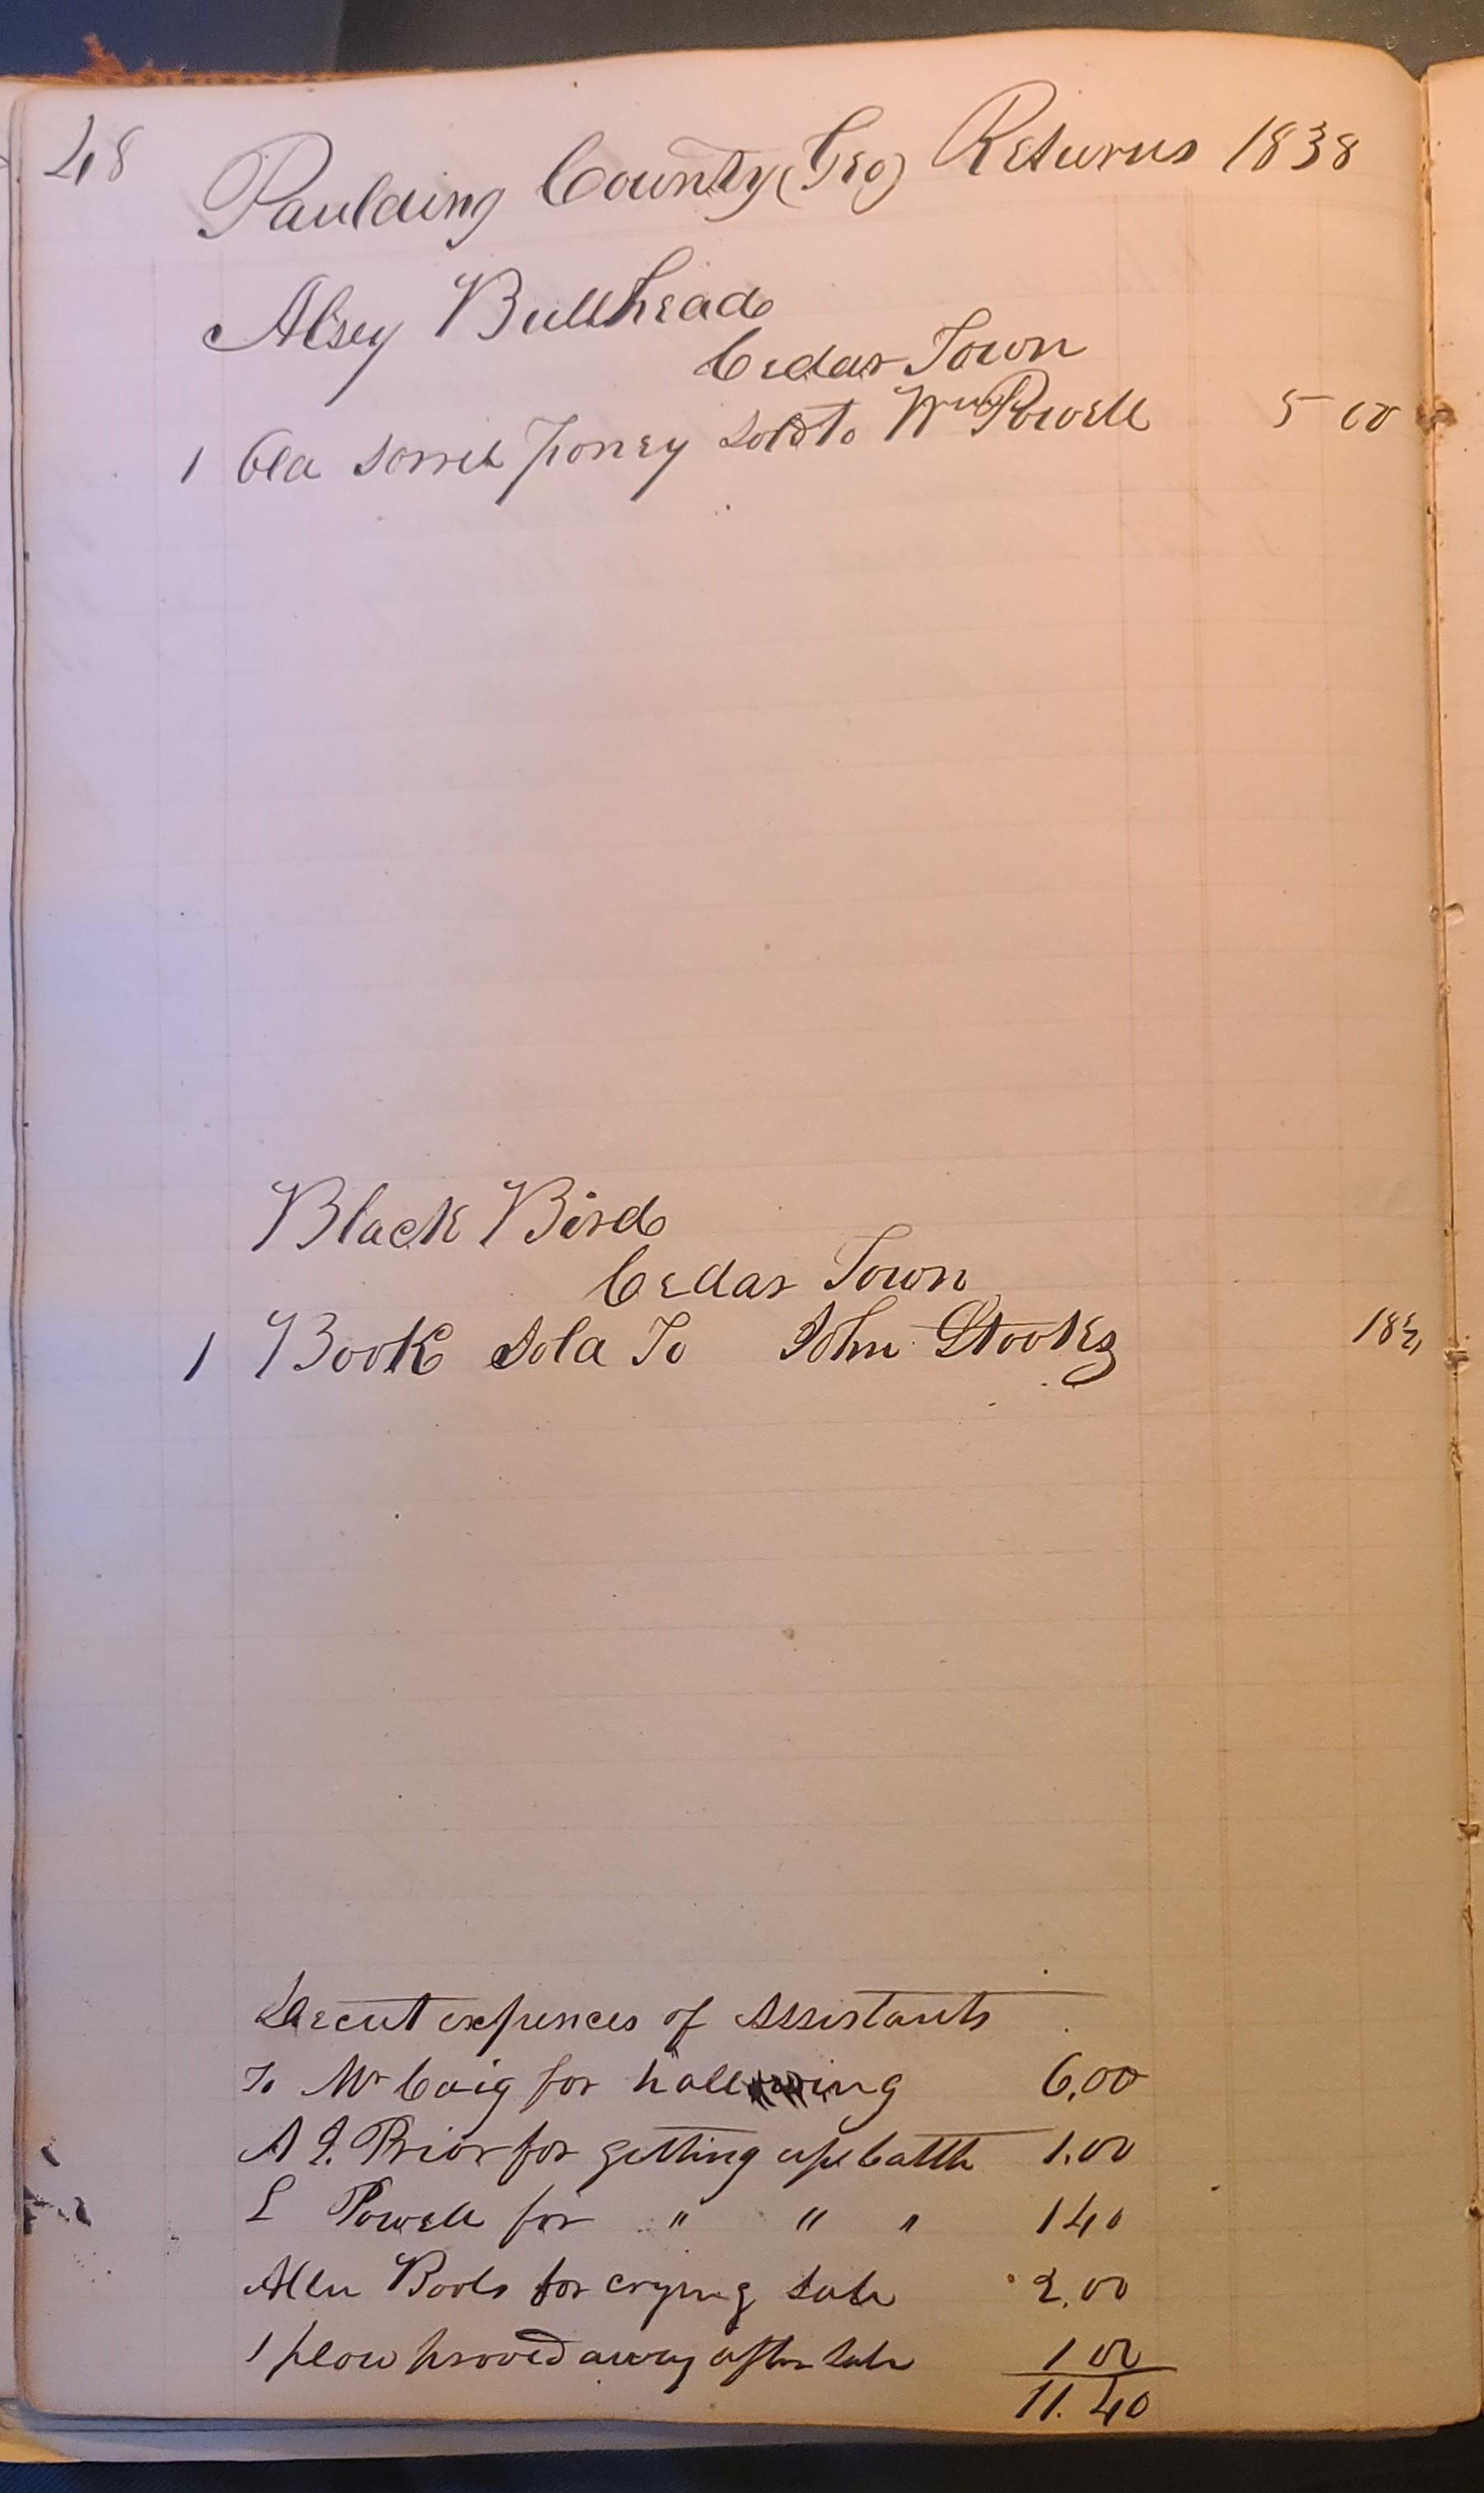 48
Paulding County (Geo) Returns 1838
Alsey Bullhead
Cedar Town
1 Old Sorrel poney sold to Wm Powell 5 00
Black Bird
Cedar Town
1 Book Sold To John Stooks 18¾
Deduct expences of Assistants
To Mr Caig for halling 6.00
A J. Prior for getting up Cattle 1.00
L Powell for " " " 1 40
Allen for crying sale 2.00
1 plow proved away after sale 1 00
11.40